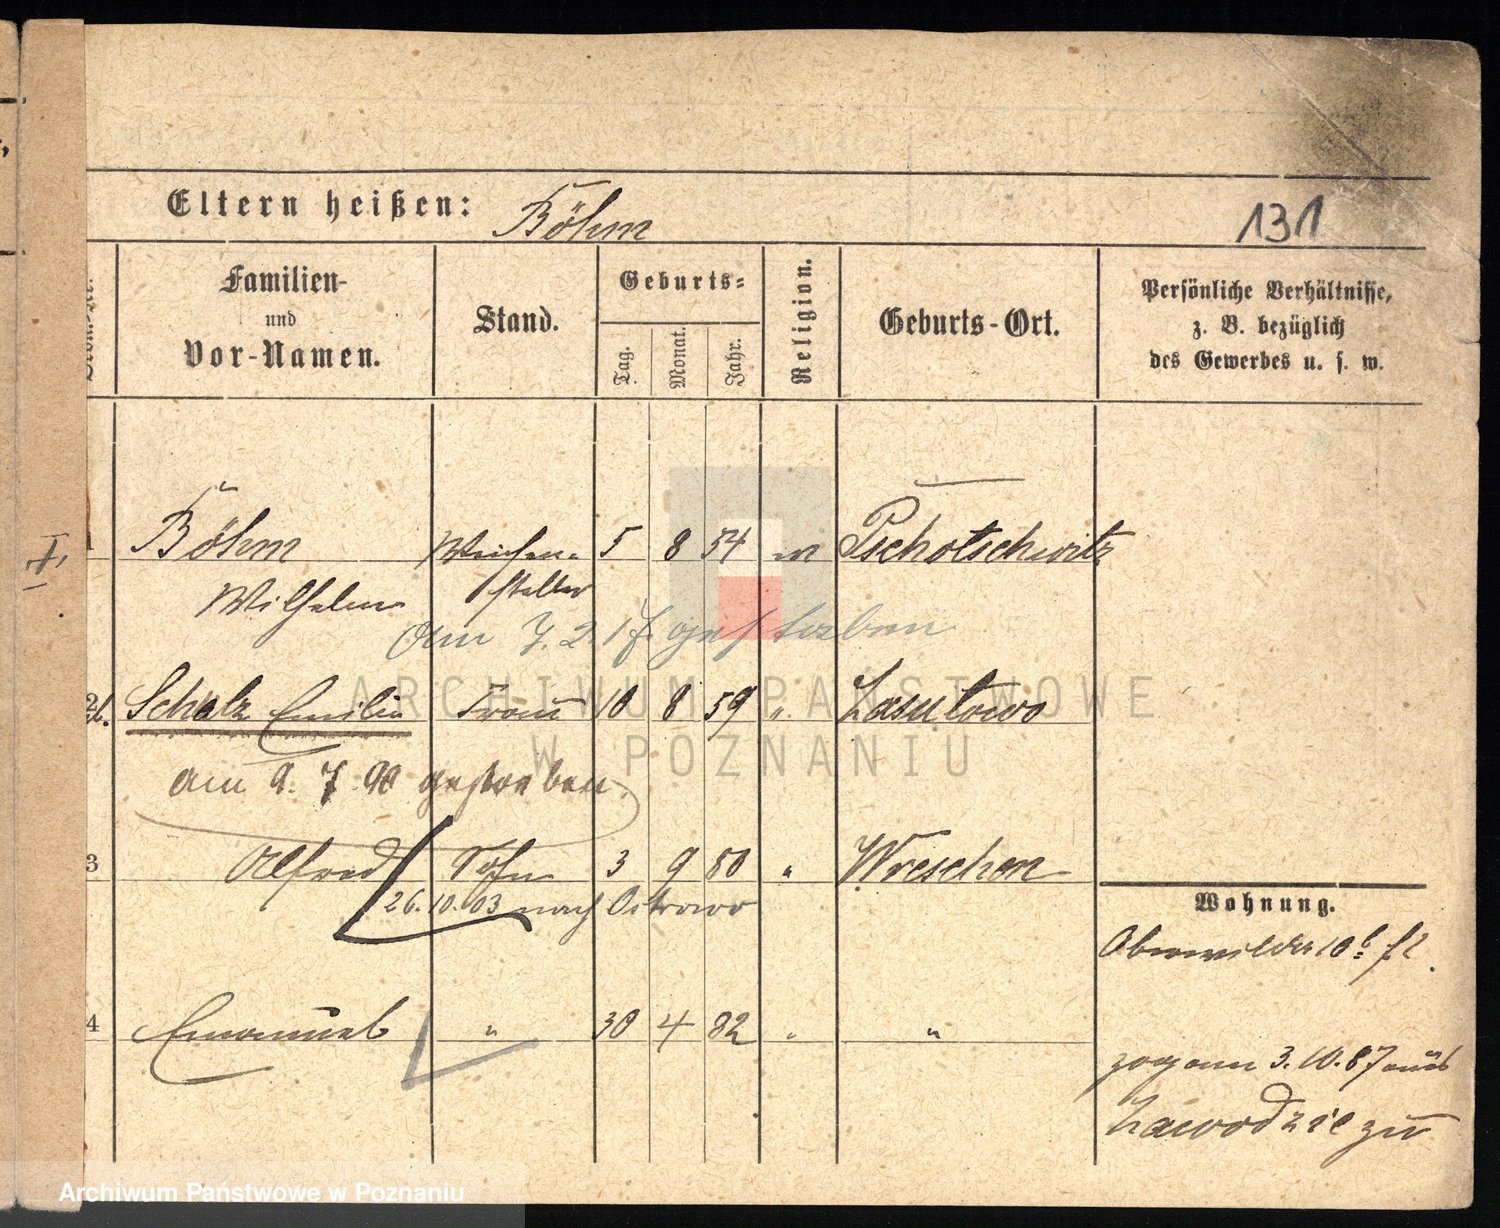 Eltern heißen: Böhm
131
Familien-
und
Vor-Namen.
Stand.
Geburts-
Tag.
Monat.
Jahr.
Religion.
Geburts-Ort.
Persönliche Verhältnisse,
z. B. bezüglich
des Gewerbes u. s. w.
1 Böhm Weichen- 5 8 54 Pschotschwitz
Wilhelm steller
am 7. 2. 17. gestorben
2 Scholz Emilie Frau 10 8 59 " Lasutowo
am 9. 7. 90 gestorben
3 Alfred Sohn 3 9 80 " Wreschen
26. 10. 03 nach Ostrowo
Wohnung.
Oberwilda 10b
4 Emanuel " 30 4 82 " "
zog am 3. 10. 87 aus
Zawodzie zu
I.
ARCHIWUM PAŃSTWOWE
W POZNANIU
Archiwum Państwowe w Poznaniu